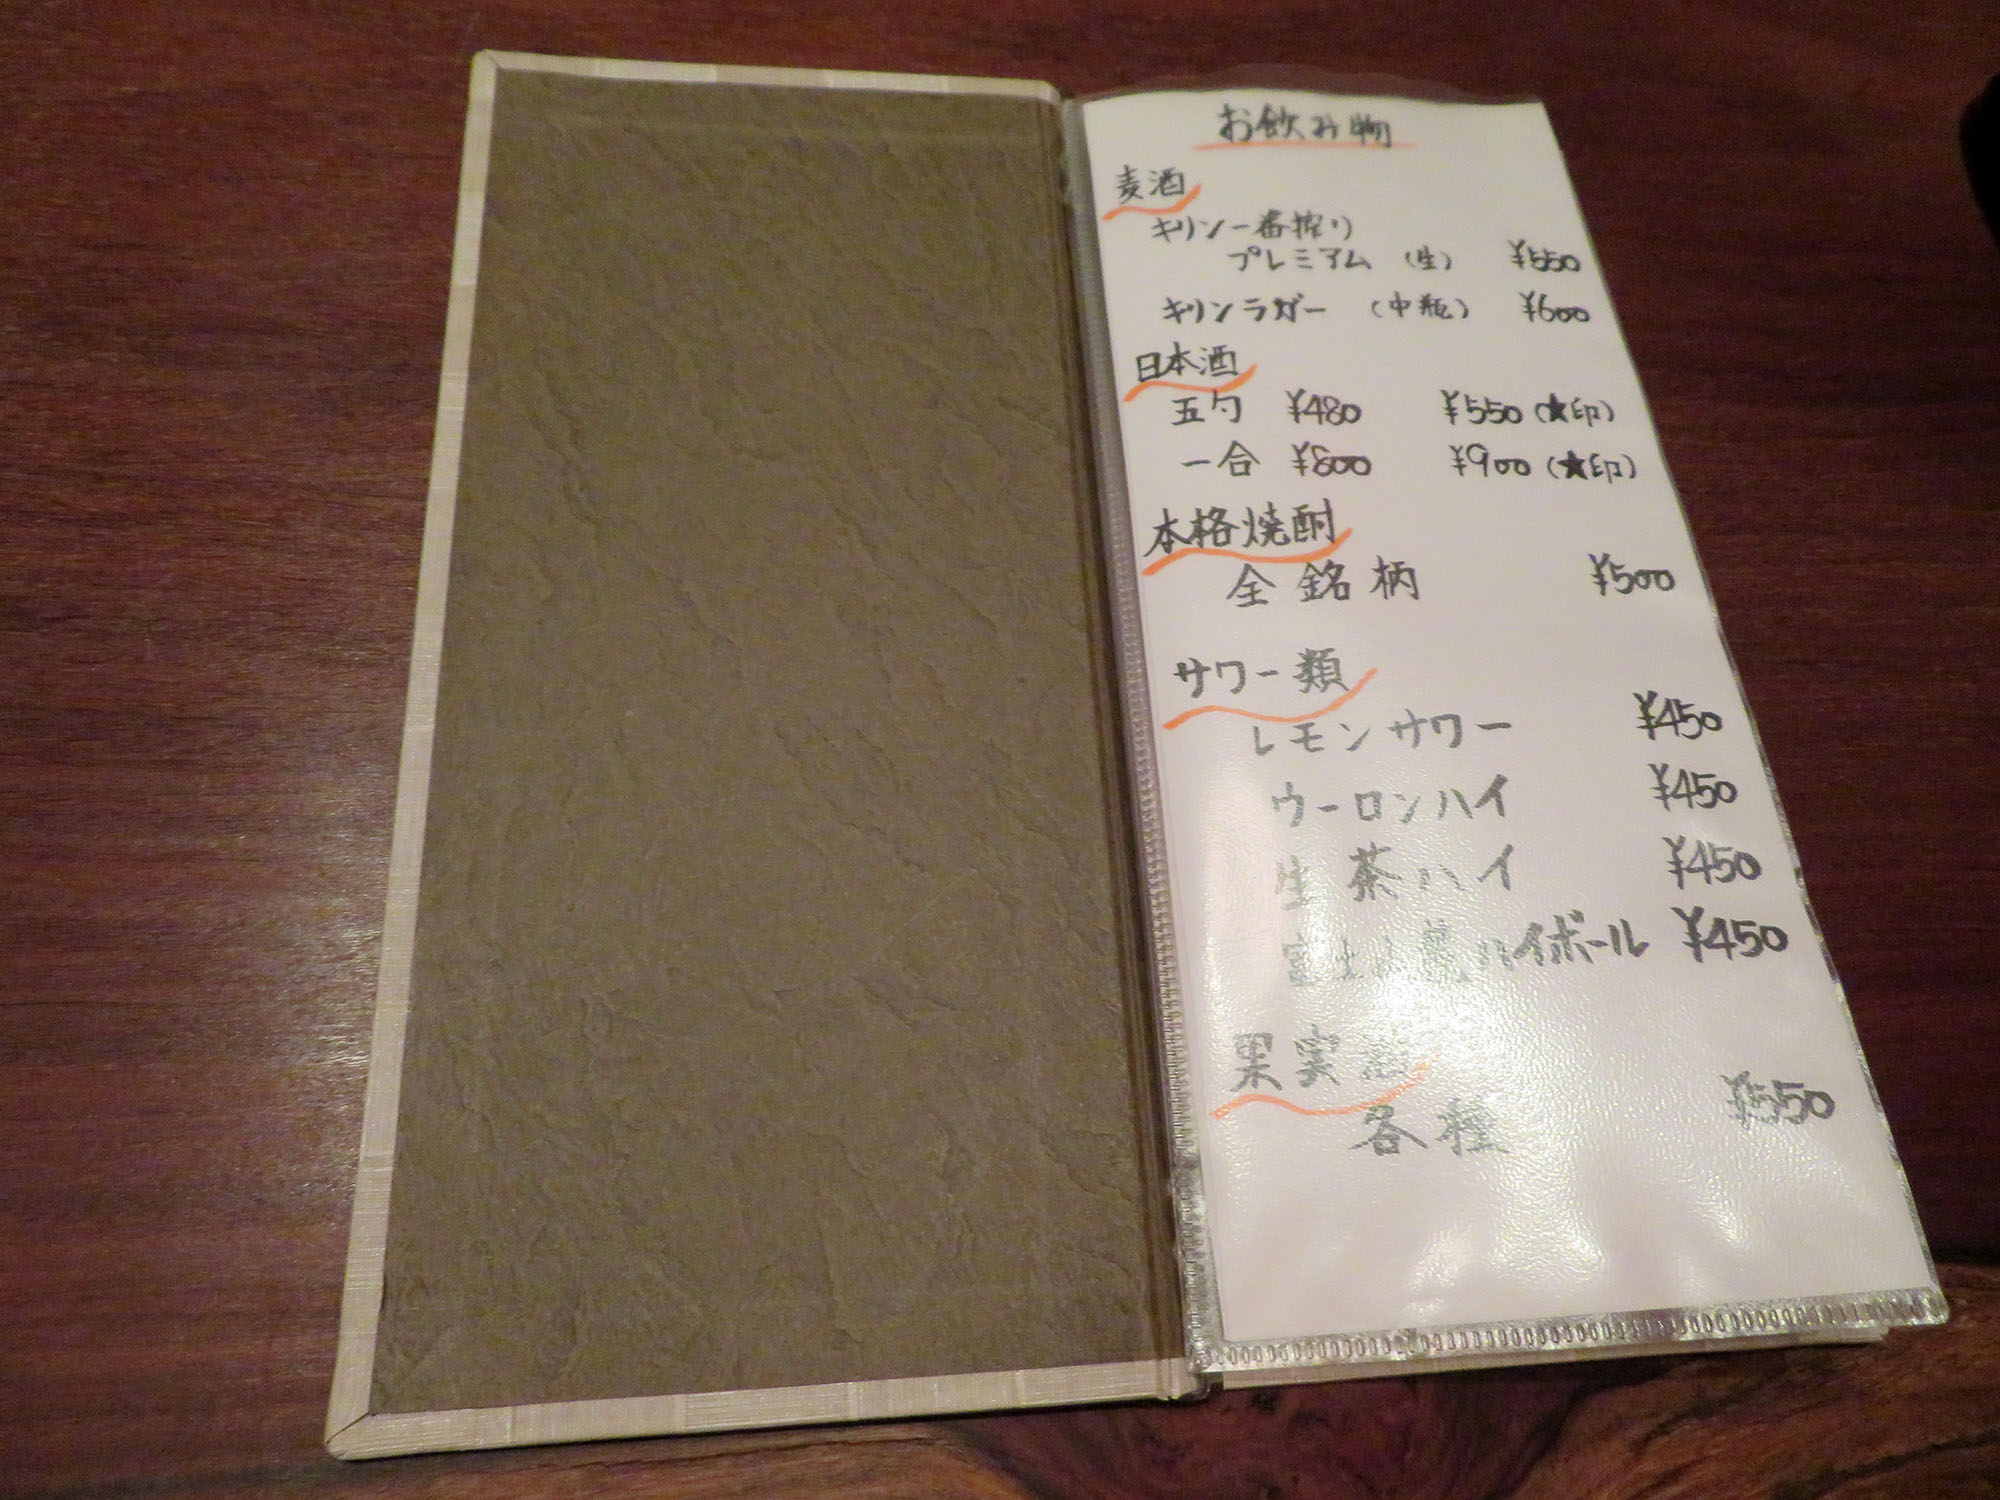 お飲み物
麦酒
キリン一番搾り
プレミアム (生) ¥550
キリンラガー (中瓶) ¥600
日本酒
五勺 ¥480 ¥550 (★印)
一合 ¥800 ¥900 (★印)
本格焼酎
全銘柄 ¥500
サワー類
レモンサワー ¥450
ウーロンハイ ¥450
生茶ハイ ¥450
富士山麓ハイボール ¥450
果実酒
各種 ¥550